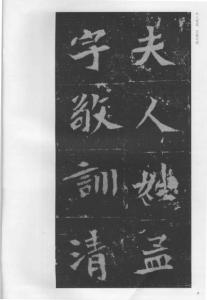 夫人姓孟
字敬訓清